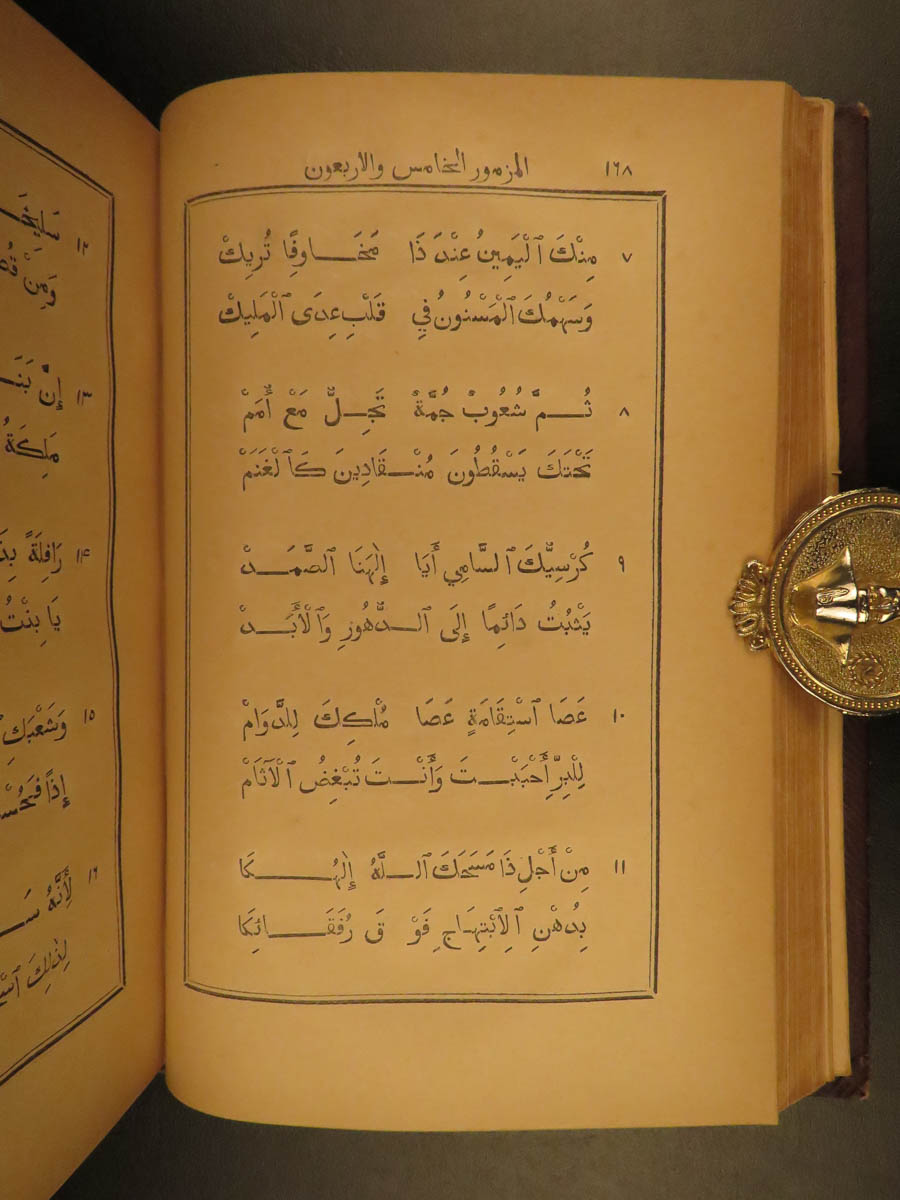 ١٦٨ المزمور الخامس والاربعون
٧ مِنْكَ ٱلْيَمِينُ عِنْدَ ذَا مَخَاوِفًا تُرِيكْ
وَسَهْمُكَ ٱلْمَسْنُونُ فِي قَلْبِ عِدَى ٱلْمَلِيكْ
٨ ثُمَّ شُعُوبٌ جُمَّةٌ تَجِلُّ مَعْ أُمَمْ
تَحْتَكَ يَسْقُطُونَ مُنْقَادِينَ كَٱلْغَنَمْ
٩ كُرْسِيُّكَ ٱلسَّامِي أَيَا إِلٰهَنَا ٱلصَّمَدْ
يَثْبُتُ دَائِمًا إِلَى ٱلدُّهُورِ وَٱلْأَبَدْ
١٠ عَصَا ٱسْتِقَامَةٍ عَصَا مُلْكِكَ لِلدَّوَامْ
لِلْبِرِّ أَحْبَبْتَ وَأَنْتَ تُبْغِضُ ٱلْآثَامْ
١١ مِنْ أَجْلِ ذَا مَسَحَكَ ٱللَّهُ إِلٰهُكَا
بِدُهْنِ ٱلِٱبْتِهَاجِ فَوْقَ رُفَقَائِكَا
١٢
وَمِنْ
١٣ إِنَّ
مَلِكَةُ
١٤ رَافِلَةً
يَا بِنْتُ
١٥ وَشَعْبَكِ
إِذًا
١٦ لِأَنَّهُ
لِذٰلِكَ